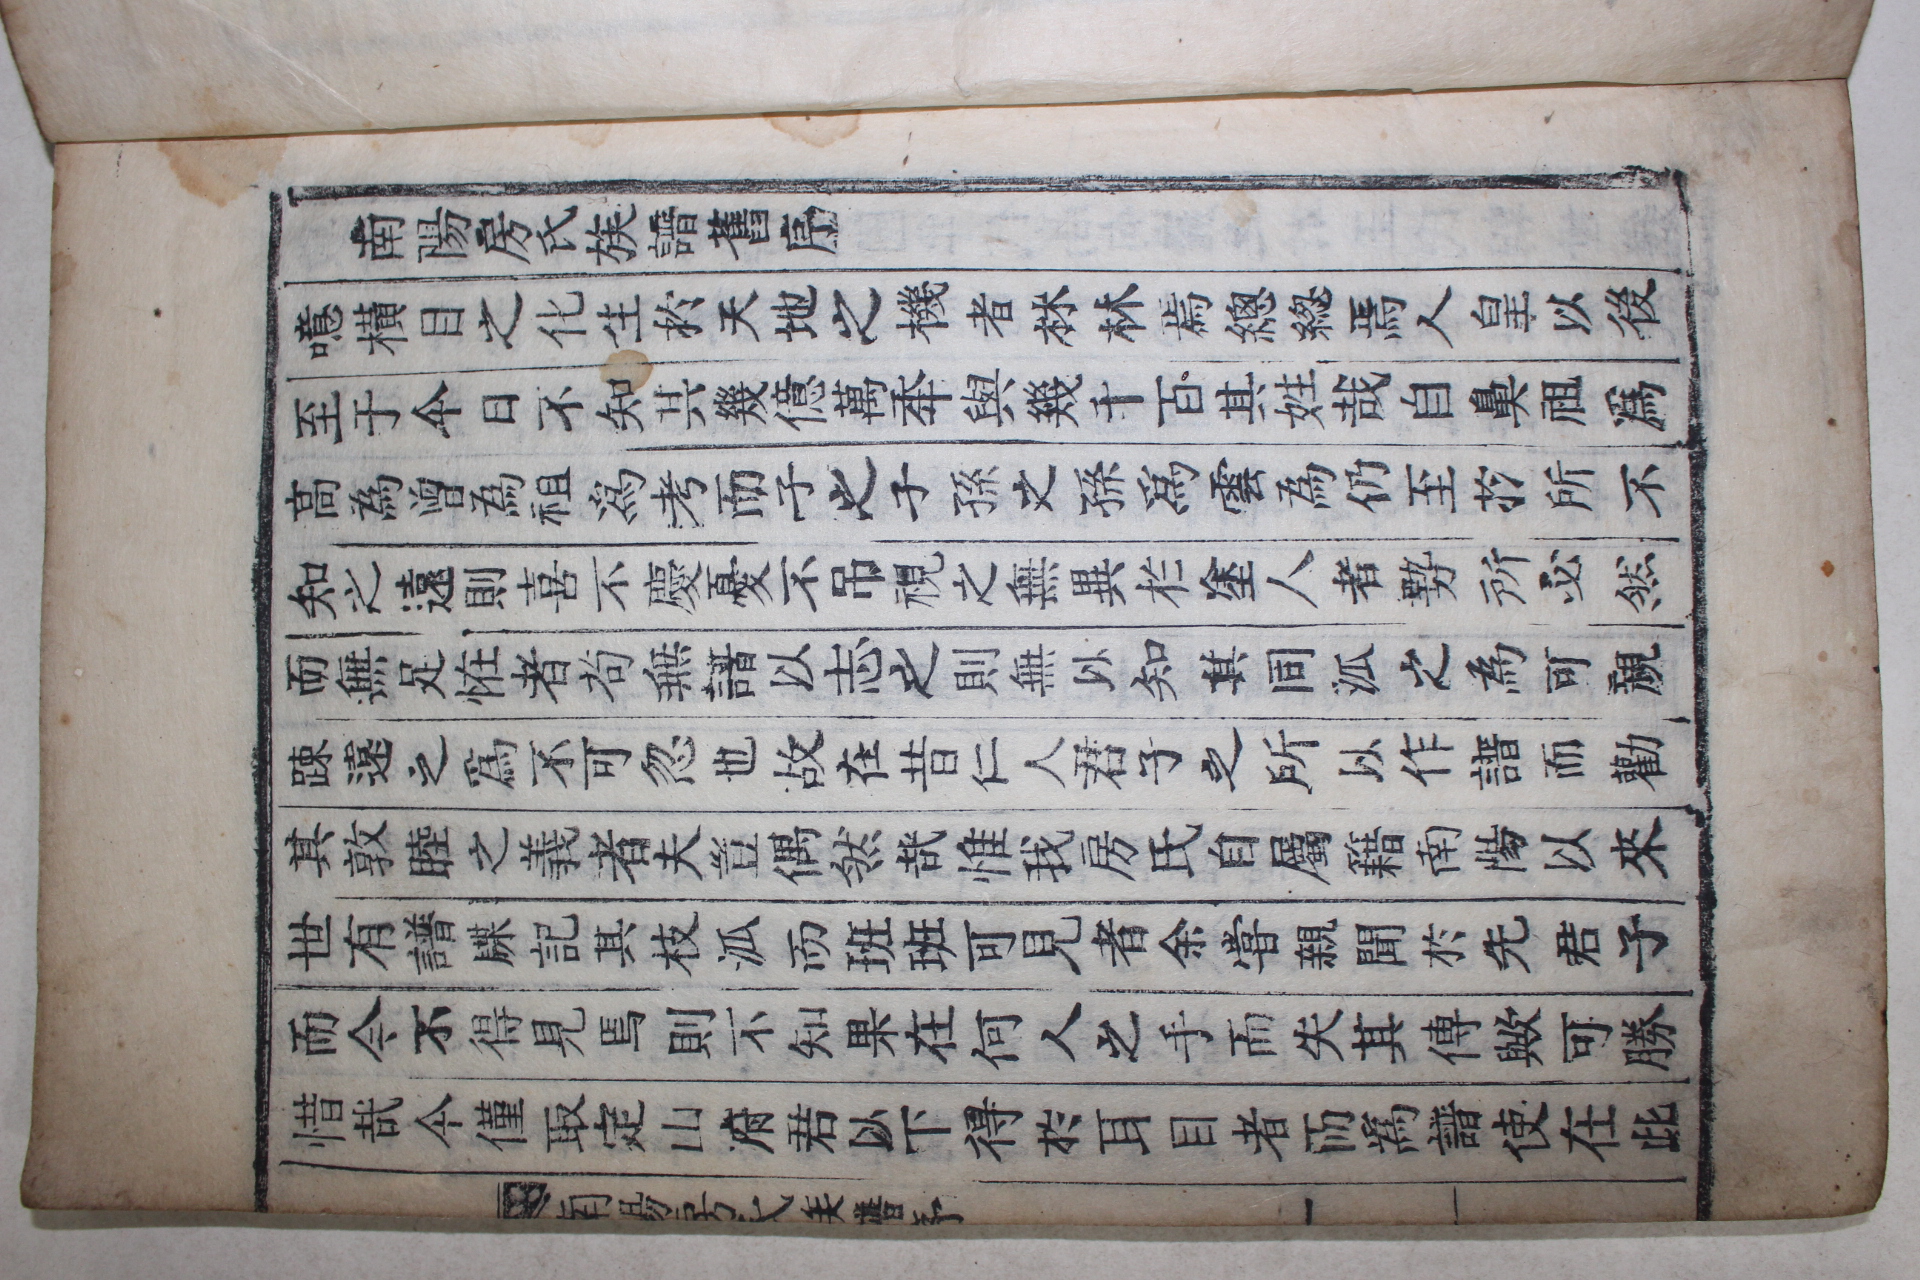 南陽房氏族譜舊序
噫橫目之化生於天地之機者林林焉總總焉人皇以後
至于今日不知其幾億萬年與幾千百其姓哉自鼻祖爲
高為曾為祖爲考而子之子孫之孫爲雲為仍至於所不
知之遠則喜不慶憂不吊視之無異於塗人者勢所必然
而無足恠者苟無譜以志之則無以知其同派之為可親
踈遠之爲不可忽也故在昔仁人君子之所以作譜而勸
其敦睦之義者夫豈偶然哉惟我房氏自屬籍南陽以來
世有譜牒記其枝派而班班可見者余嘗親聞於先君子
而今不得見焉則不知果在何人之手而失其傳歟可勝
惜哉今僅取定山府君以下得於耳目者而爲譜使在此
南陽房氏族譜序 一